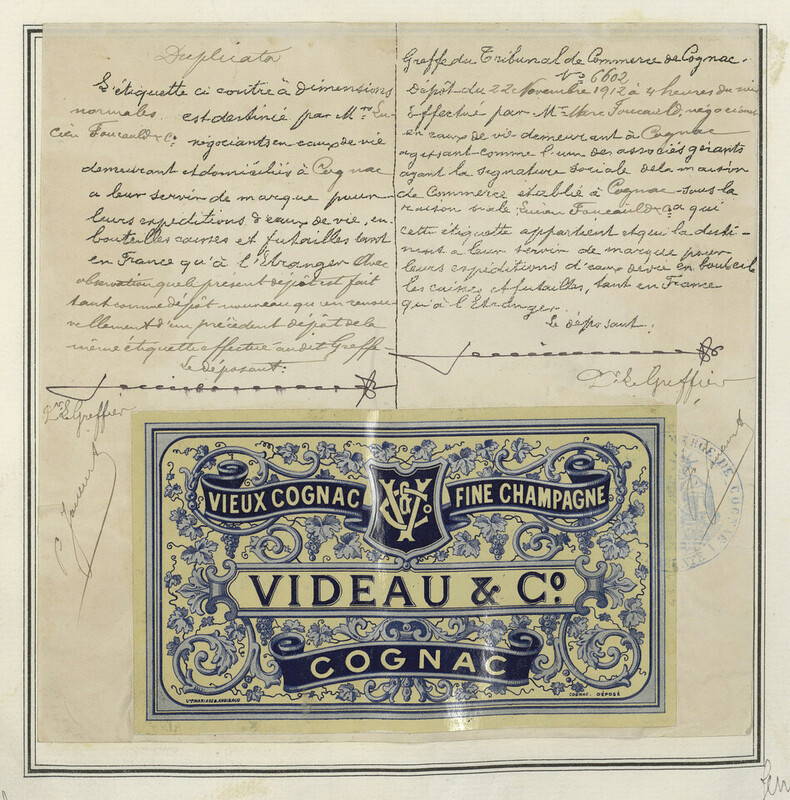 Duplicata
L'étiquette ci contre à dimensions
normales est destinée par Mrs Lu-
cien Foucauld & Co négociants en eaux de vie
demeurant et domiciliés à Cognac
a leur servir de marque pour
leurs expéditions d'eaux de vie, en
bouteilles caisses et futailles tant
en France qu'à l'Etranger Avec
observation que le présent dépôt est fait
tant comme dépôt nouveau qu'en renou-
vellement d'un précédent dépôt de la
même étiquette effectué au dit Greffe
Le déposant:
Le Greffier
Greffe du Tribunal de Commerce de Cognac.
No 6602
Dépôt du 22 Novembre 1912 à 4 heures du soir
Effectué par Mr Marc Foucauld, négociant
en eaux de vie demeurant à Cognac
agissant comme l'un des associés gérants
ayant la signature sociale de la maison
de Commerce établie à Cognac sous la
raison sociale Lucien Foucauld & Co a qui
cette étiquette appartient et qui la desti-
nent a leur servir de marque pour
leurs expéditions d'eaux de vie en bouteil-
les caisses et futailles, tant en France
qu'à l'Etranger.
Le déposant:
Le Greffier
VIEUX COGNAC FINE CHAMPAGNE
VIDEAU & Co.
COGNAC
COGNAC. DÉPOSÉ